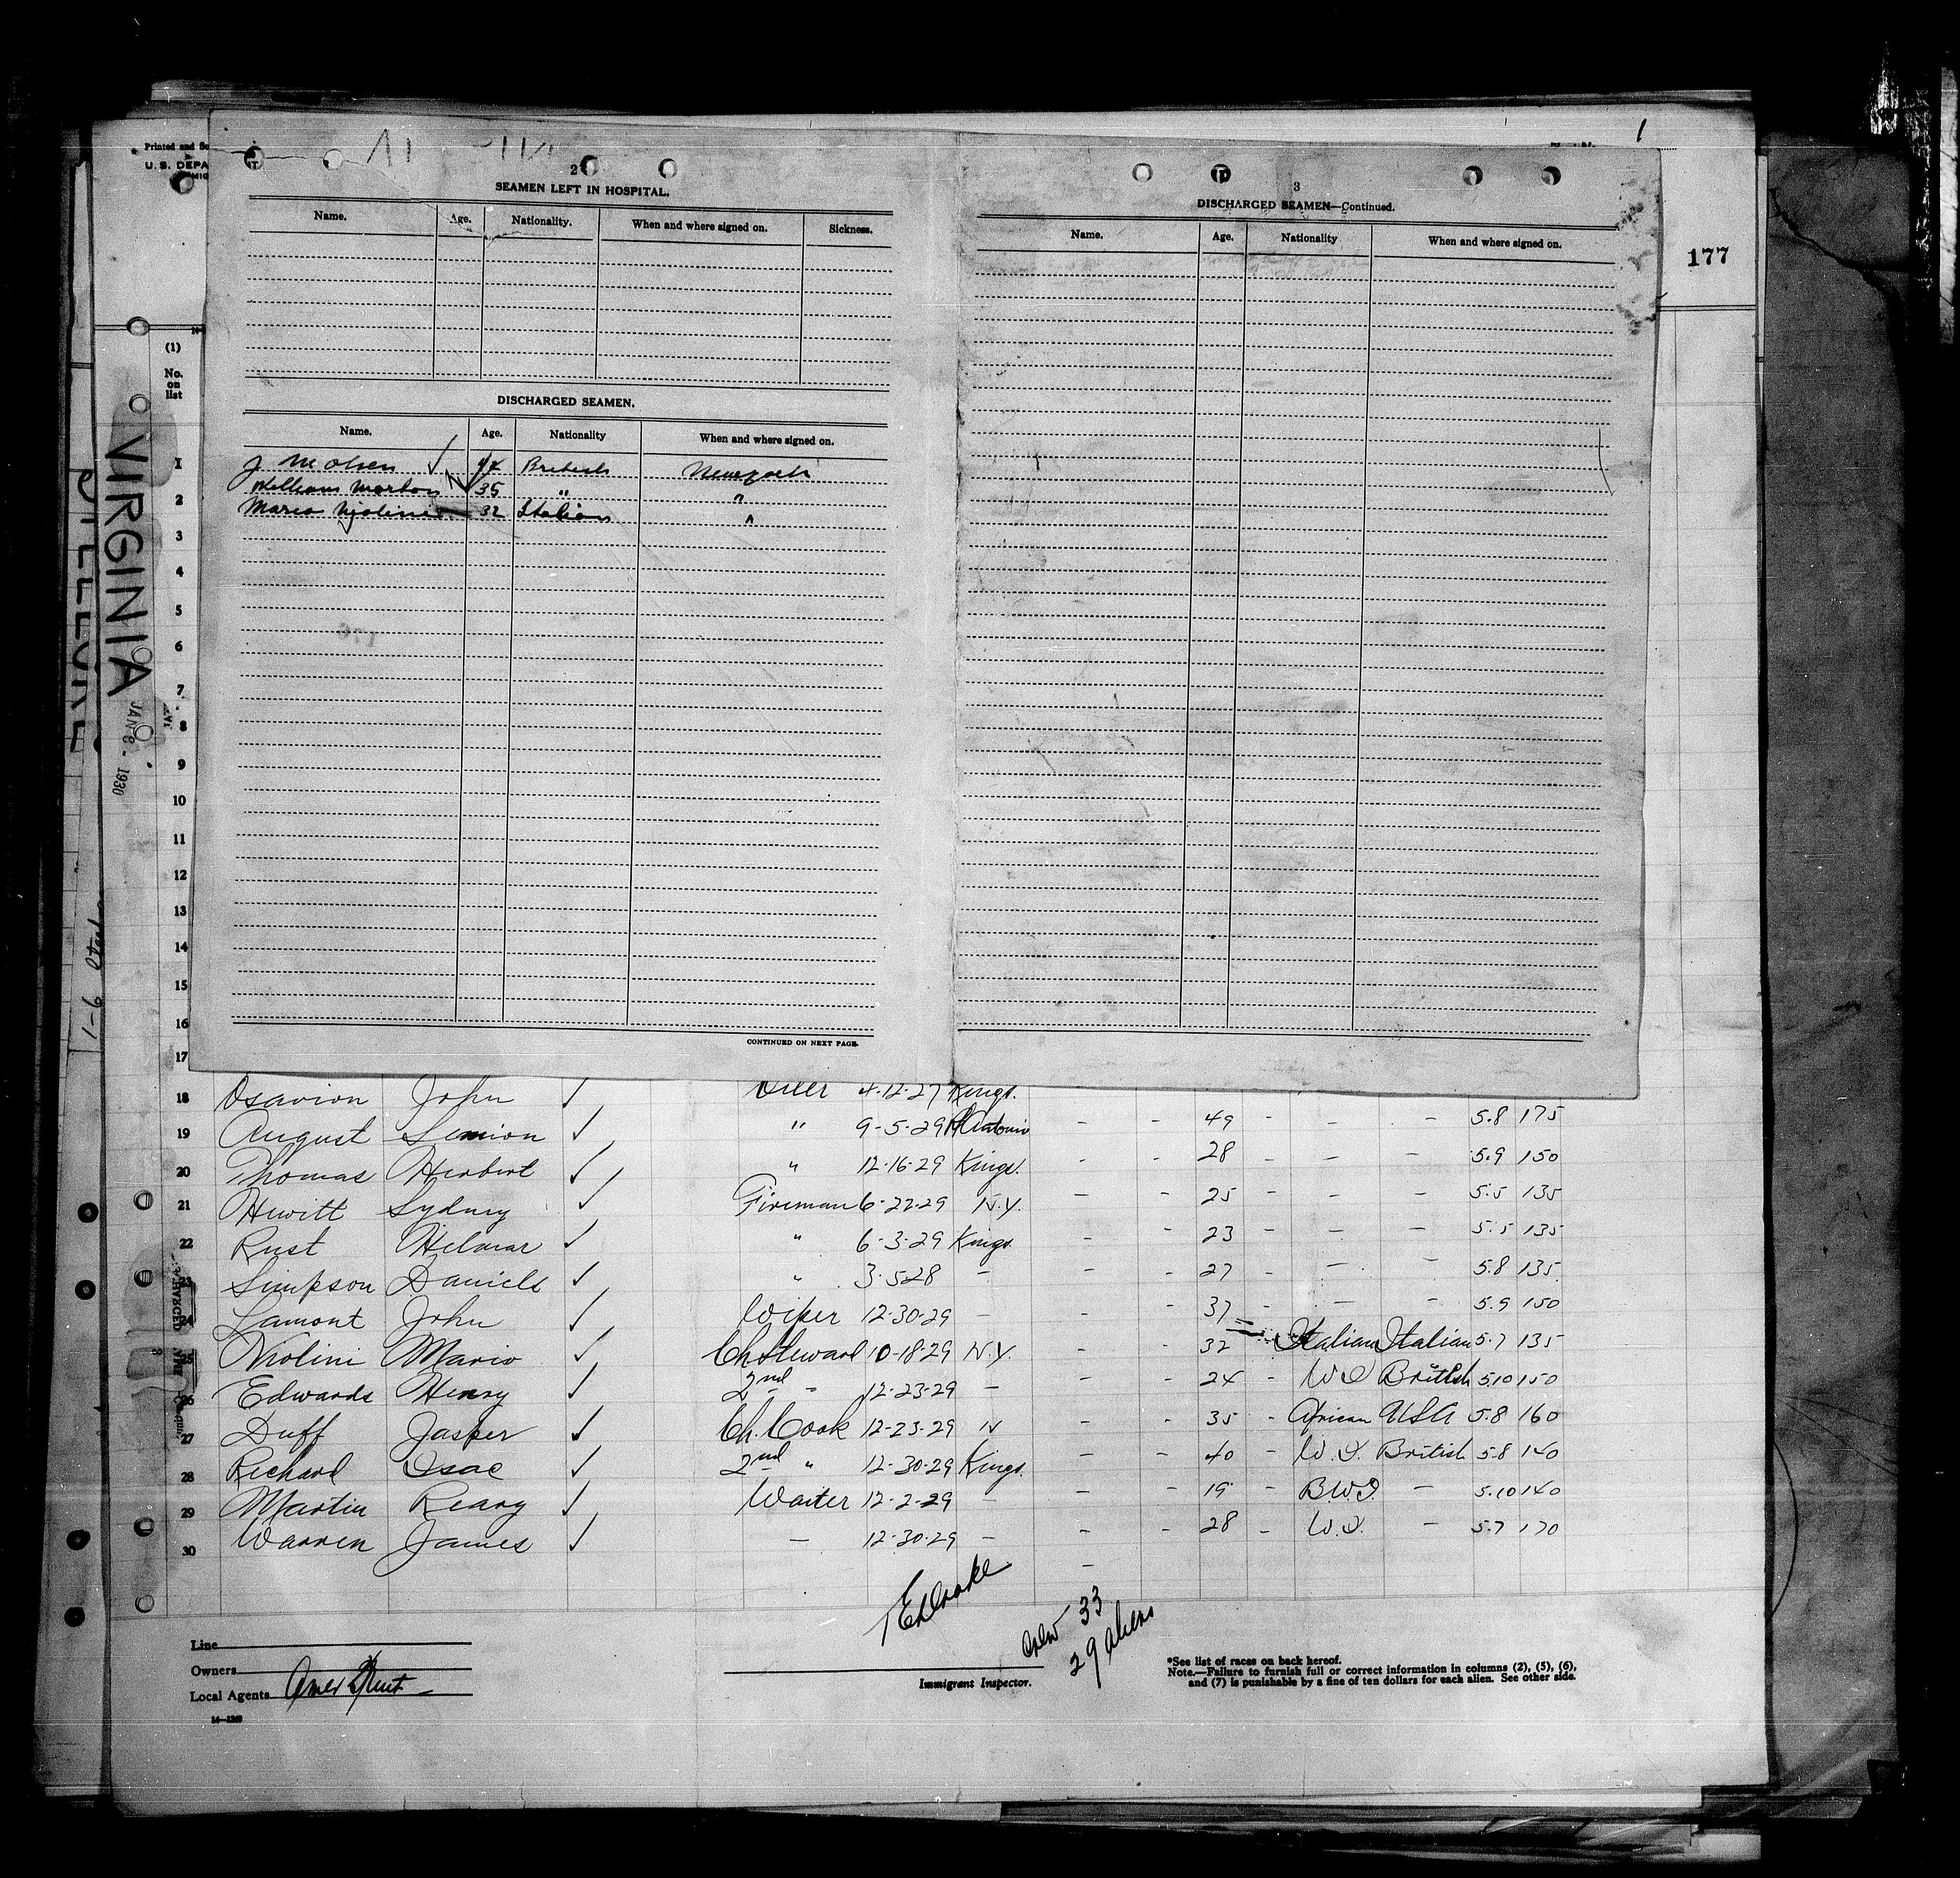 1
Printed and So
U. S. DEPA
177
2
SEAMEN LEFT IN HOSPITAL.
Name. Age. Nationality. When and where signed on. Sickness.
DISCHARGED SEAMEN.
Name. Age. Nationality When and where signed on.
British
William Morton 35 "
Mario 32 Italian
CONTINUED ON NEXT PAGE.
3
DISCHARGED SEAMEN—Continued.
Name. Age. Nationality When and where signed on.
(1)
No.
on
list
VIRGINIA
JAN 8. 1930
1
2
3
4
5
6
7
8
9
10
11
12
13
14
15
16
17
18 John ✓ Oiler 4-12-27 Kings.
19 August ✓ " 9-5-29 - - 49 - - - 5.8 175
20 Thomas Herbert ✓ " 12-16-29 Kings. - - 28 - - - 5.9 150
21 Hewitt Sydney ✓ Fireman 6-22-29 N.Y. - - 25 - - - 5.5 135
22 Rust Hilmar ✓ " 6-3-29 Kings. - - 23 - - - 5.5 135
23 Simpson Daniels ✓ " 3-5-28 - - - 27 - - - 5.8 135
24 Lamont John ✓ Wiper 12-30-29 - - - 37 - - - 5.9 150
25 Mario ✓ Ch Steward 10-18-29 N.Y. - - 32 Italian Italian 5.7 135
26 Edwards Henry ✓ 2nd " 12-23-29 - - - 24 - W I British 5.10 150
27 Duff Jasper ✓ Ch. Cook 12-23-29 - - 35 - African USA 5.8 160
28 Richard Isac ✓ 2nd " 12-30-29 Kings. - - 40 - W.I. British 5.8 140
29 Martin Reary ✓ Waiter 12-2-29 - - - 19 - B.W.I. - 5.10 140
30 Warren James ✓ - 12-30-29 - - - 28 - W.I. - 5.7 170
Crew 33
29 aliens
Line
Owners
Local Agents
14—1240
Immigrant Inspector.
*See list of races on back hereof.
Note.—Failure to furnish full or correct information in columns (2), (5), (6),
and (7) is punishable by a fine of ten dollars for each alien. See other side.